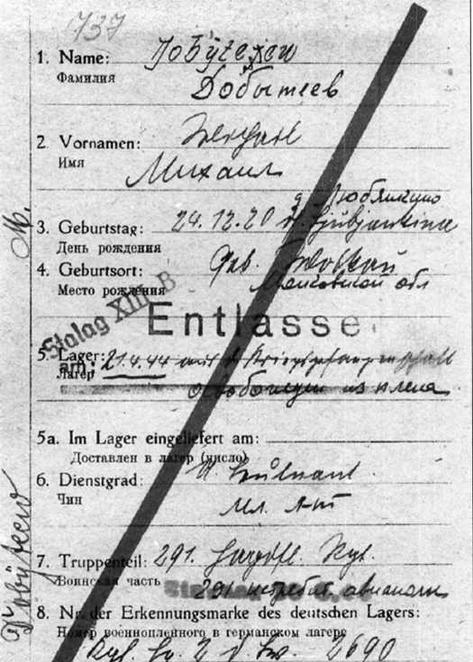 737
1. Name: Dobytejew
Фамилия
Добытеев
2 Vornamen: Michael
Имя
Михаил
д. Любянкино
3. Geburtstag: 24.12.20 d. Ljubjankina
День рождения
4. Geburtsort: Geb. Moskau
Место рождения Московской обл
Stalag XIII B
Entlasse
5. Lager:
am: 21.4.44 aus d. Kriegsgefangenschaft
Лагерь освобожден из плена
5a. Im Lager eingeliefert am:
Доставлен в лагер (число)
6. Dienstgrad: U. Leutnant
Чин мл. л-т
7. Truppenteil: 291. Jagdfl. Rgt.
Воинская часть 291 истребит. авиаполк
8. Nr. der Erkennungsmarke des deutschen Lagers:
Номер военнопленного в германском лагере
2 d. Lw. 2690
M.
Dobytejew